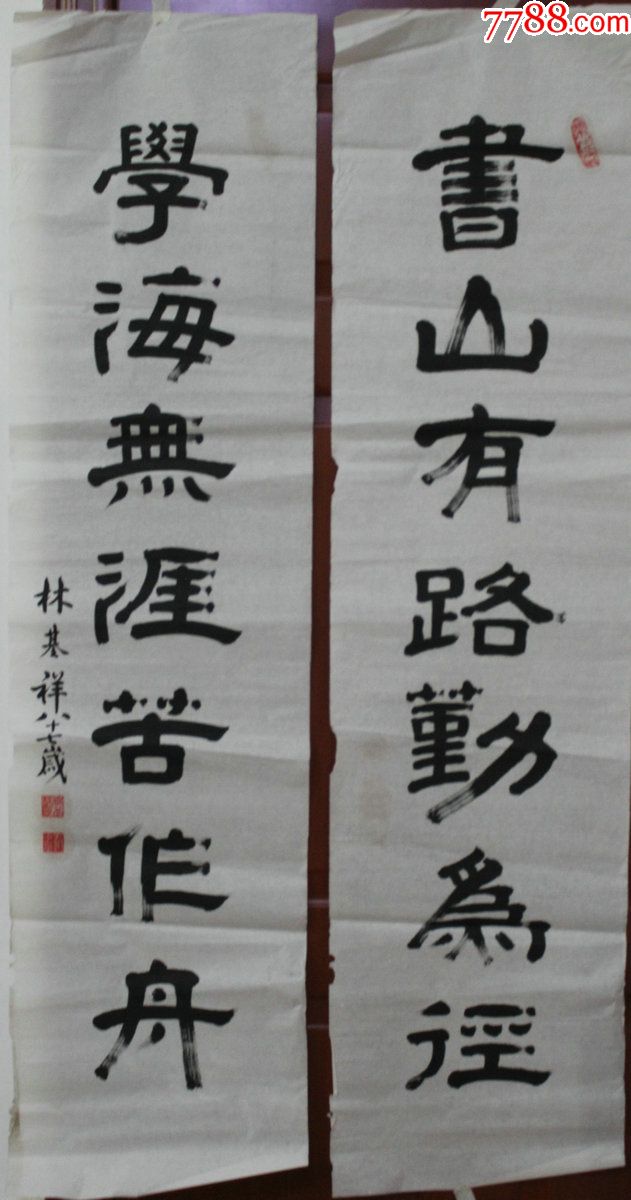 7788.com
書山有路勤為徑
學海無涯苦作舟
林基祥八十七歲